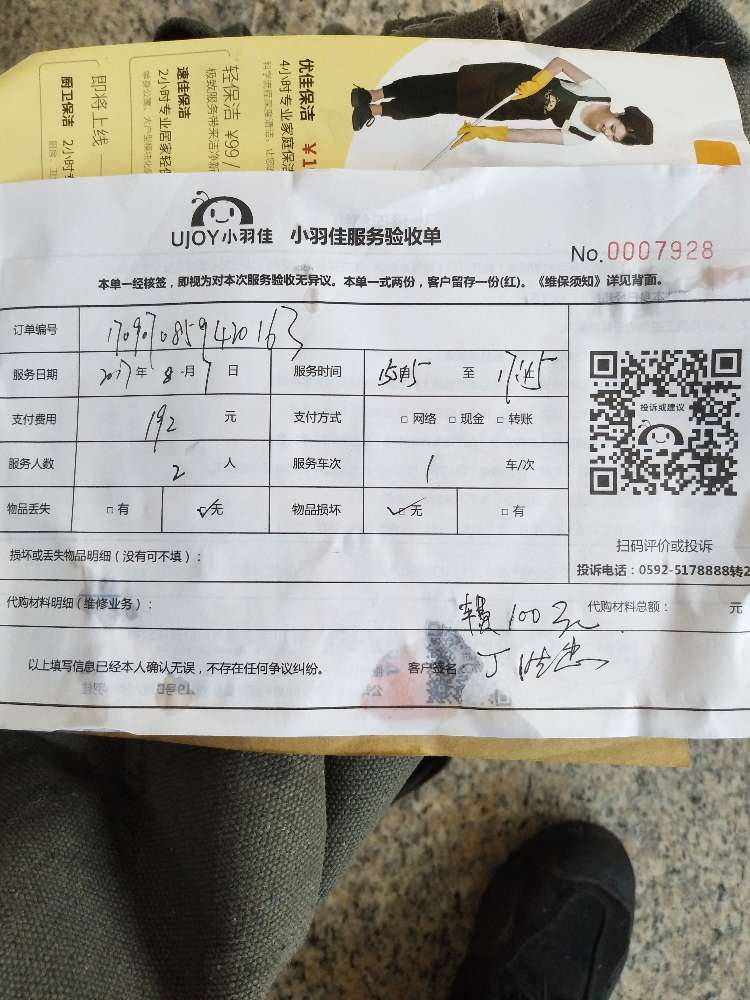 优佳保洁 ¥1
4小时专业家庭保洁
轻保洁 ¥99/
极致服务带来洁净
速佳保洁
2小时专业居家轻
即将上线
厨卫保洁 2小时
UJOY小羽佳 小羽佳服务验收单
No.0007928
本单一经核签，即视为对本次服务验收无异议。本单一式两份，客户留存一份(红)。《维保须知》详见背面。
订单编号 1709070859420163
服务日期 2017年 8月 7日 服务时间 15:45 至 17:45
支付费用 192 元 支付方式 □ 网络 □ 现金 □ 转账
投诉或建议
服务人数 2 人 服务车次 1 车/次
物品丢失 □ 有 ☑ 无 物品损坏 ☑ 无 □ 有
扫码评价或投诉
损坏或丢失物品明细（没有可不填）：
投诉电话：0592-5178888转2
代购材料明细（维修业务）：
车费100元 代购材料总额： 元
以上填写信息已经本人确认无误，不存在任何争议纠纷。 客户签名 丁